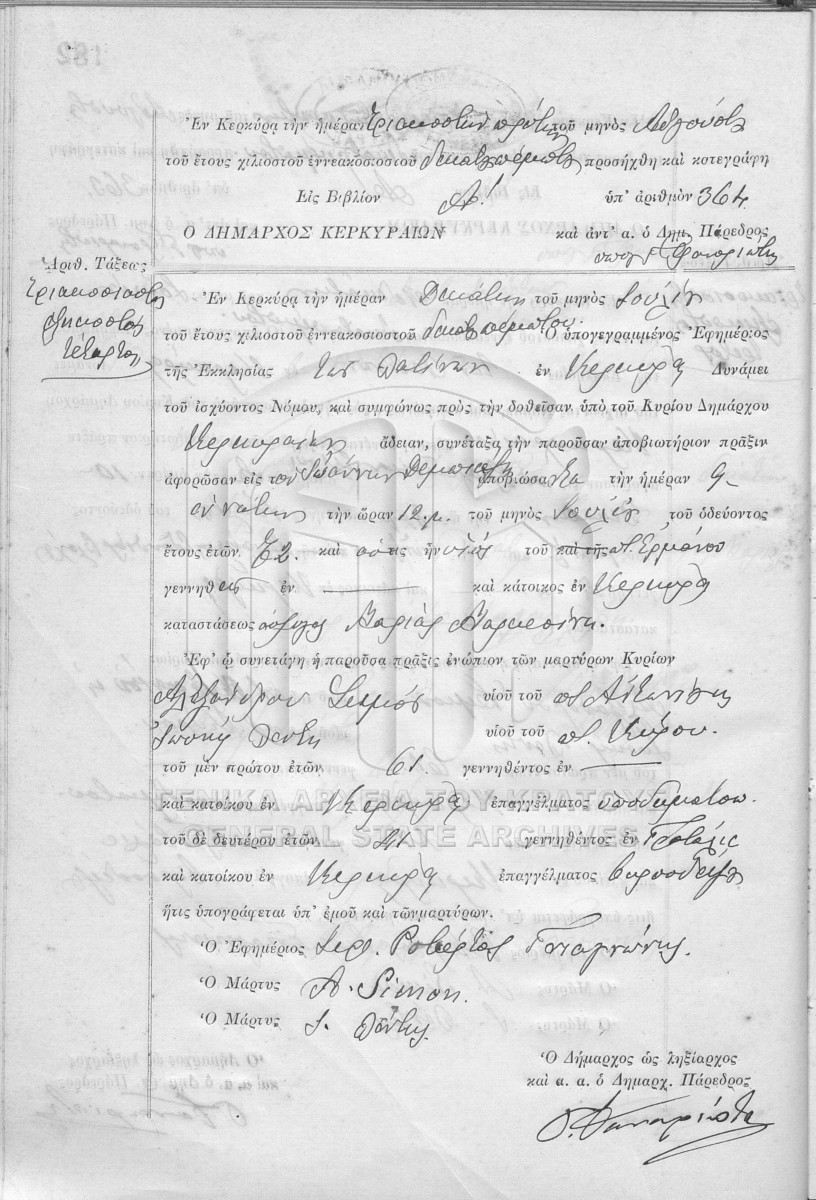 182
Ἐν Κερκύρᾳ τὴν ἡμέραν τριακοστὴν πρώτην τοῦ μηνὸς Αὐγούστου
τοῦ ἔτους χιλιοστοῦ ἐννεακοσιοστοῦ δεκάτου πέμπτου προσήχθη καὶ κατεγράφη
Εἰς Βιβλίον Α! ὑπ' ἀριθμὸν 364
Ο ΔΗΜΑΡΧΟΣ ΚΕΡΚΥΡΑΙΩΝ καὶ ἀντ' α. ὁ Δημ. Πάρεδρος
Ἀριθ. Τάξεως
τριακοσιοστὴ
ἑξηκοστὴ
τετάρτη
Ἐν Κερκύρᾳ τὴν ἡμέραν Δεκάτην τοῦ μηνὸς Ἰουλίου
τοῦ ἔτους χιλιοστοῦ ἐννεακοσιοστοῦ δεκάτου πέμπτου Ὁ ὑπογεγραμμένος Ἐφημέριος
τῆς Ἐκκλησίας τῶν Λατίνων ἐν Κερκύρᾳ Δυνάμει
τοῦ ἰσχύοντος Νόμου, καὶ συμφώνως πρὸς τὴν δοθεῖσαν ὑπὸ τοῦ Κυρίου Δημάρχου
Κερκυραίων ἄδειαν, συνέταξα τὴν παροῦσαν ἀποβιωτήριον πρᾶξιν
ἀφορῶσαν εἰς τὸν Ἰωάννην ἀποβιώσαντα τὴν ἡμέραν 9
ἐννάτην τὴν ὥραν 12 μ. τοῦ μηνὸς Ἰουλίου τοῦ ὁδεύοντος
ἔτους ἐτῶν 72. καὶ ὅστις ἦν υἱὸς τοῦ καὶ τῆς π. Ἑρμάνου
γεννηθεὶς ἐν καὶ κάτοικος ἐν Κερκύρᾳ
καταστάσεως σύζυγος Μαρίας
Ἐφ' ᾧ συνετάγη ἡ παροῦσα πρᾶξις ἐνώπιον τῶν μαρτύρων Κυρίων
Ἀλεξάνδρου Σιμὸν υἱοῦ τοῦ π. Ἀντωνίου
Ἰωσὴφ υἱοῦ τοῦ π. Κάρλου.
τοῦ μὲν πρώτου ἐτῶν 61. γεννηθέντος ἐν
καὶ κατοίκου ἐν Κερκύρᾳ ἐπαγγέλματος ὑποδηματοπ.
τοῦ δὲ δευτέρου ἐτῶν 41 γεννηθέντος ἐν
καὶ κατοίκου ἐν Κερκύρᾳ ἐπαγγέλματος βυρσοδέψου
ἥτις ὑπογράφεται ὑπ' ἐμοῦ καὶ τῶνμαρτύρων.
Ὁ Ἐφημέριος Ροβέρτος
Ὁ Μάρτυς A. Simon.
Ὁ Μάρτυς
Ὁ Δήμαρχος ὡς ληξίαρχος
καὶ α. α. ὁ Δημαρχ. Πάρεδρος
ΓΕΝΙΚΑ ΑΡΧΕΙΑ ΤΟΥ ΚΡΑΤΟΥΣ
GENERAL STATE ARCHIVES